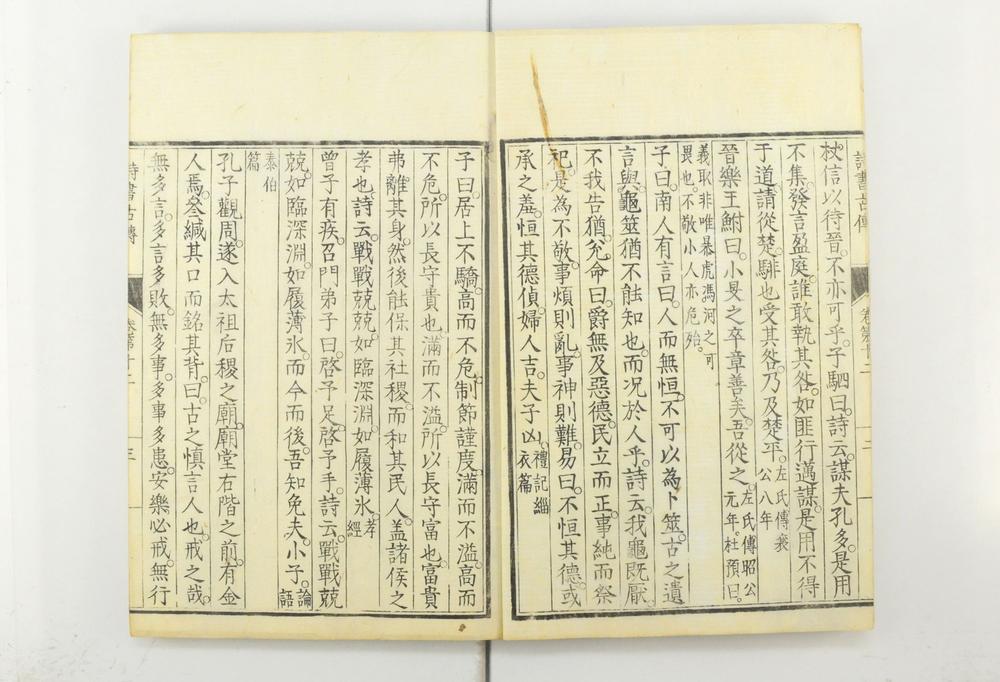 詩書古傳 卷第十二 二
杖信以待晉。不亦可乎。子駟曰。詩云。謀夫孔多。是用
不集。發言盈庭。誰敢執其咎。如匪行邁謀。是用不得
于道。請從楚。騑也受其咎。乃及楚平。左氏傳襄公八年
晉樂王鮒曰。小旻之卒章善矣。吾從之。左氏傳昭公元年。杜預曰。
義取非唯暴虎馮河之可畏也。不敬小人亦危殆。
子曰。南人有言曰。人而無恒。不可以為卜筮。古之遺
言與。龜筮猶不能知也。而況於人乎。詩云。我龜既厭。
不我告猶。兊命曰。爵無及惡德。民立而正事。純而祭
祀。是為不敬。事煩則亂。事神則難。易曰。不恒其德。或
承之羞。恒其德偵。婦人吉。夫子凶。禮記緇衣篇
子曰。居上不驕。高而不危。制節謹度。滿而不溢。高而
不危。所以長守貴也。滿而不溢。所以長守富也。富貴
弗離其身。然後能保其社稷。而和其民人。盖諸侯之
孝也。詩云。戰戰兢兢。如臨深淵。如履薄氷。孝經
曾子有疾。召門弟子曰。啓予足。啓予手。詩云。戰戰兢
兢。如臨深淵。如履薄氷。而今而後。吾知免夫。小子。論語
泰伯篇
孔子觀周。遂入太祖后稷之廟。廟堂右階之前。有金
人焉。叄緘其口。而銘其背曰。古之慎言人也。戒之哉。
無多言。多言多敗。無多事。多事多患。安樂必戒。無行
詩書古傳 卷第十二 三